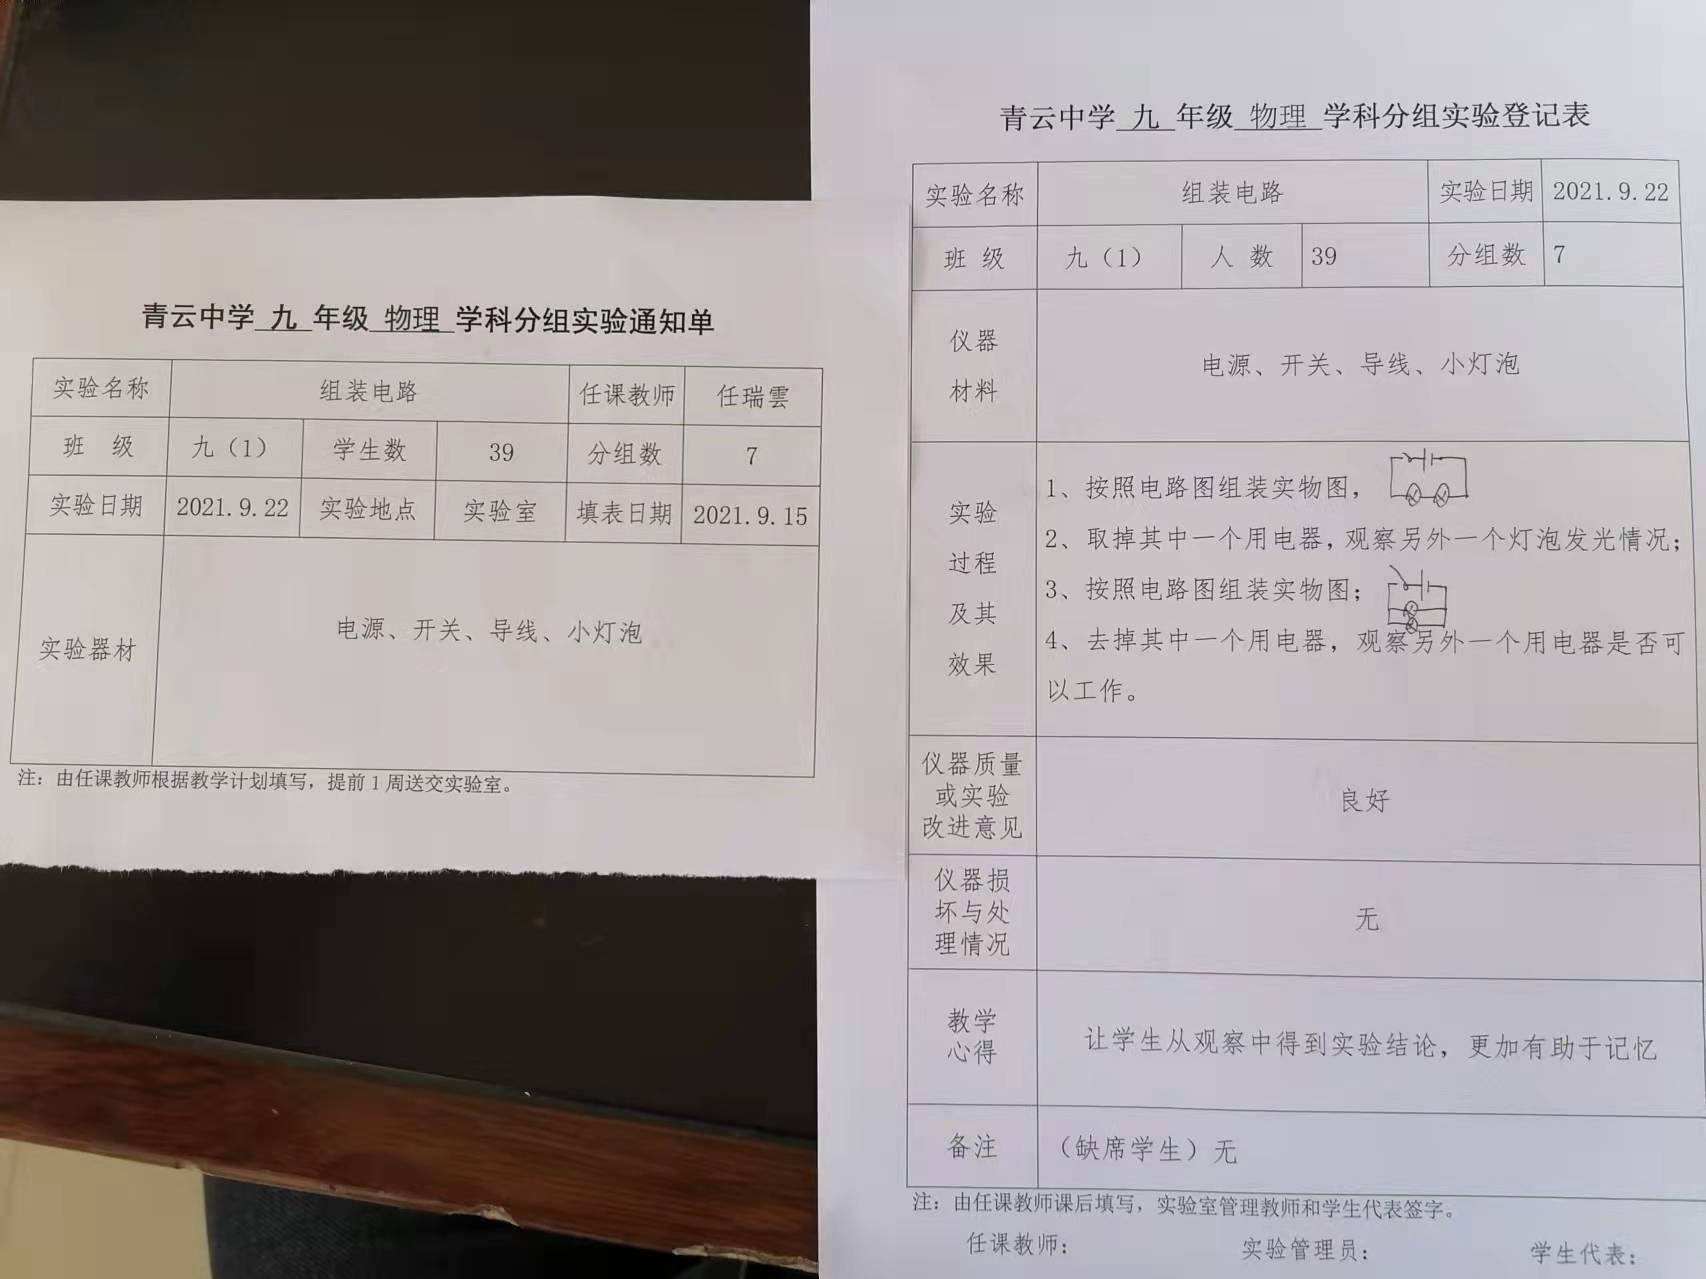 青云中学 九 年级 物理 学科分组实验通知单
实验名称 组装电路 任课教师 任瑞雲
班 级 九（1） 学生数 39 分组数 7
实验日期 2021.9.22 实验地点 实验室 填表日期 2021.9.15
实验器材 电源、开关、导线、小灯泡
注：由任课教师根据教学计划填写，提前1周送交实验室。
青云中学 九 年级 物理 学科分组实验登记表
实验名称 组装电路 实验日期 2021.9.22
班 级 九（1） 人 数 39 分组数 7
仪器
材料
电源、开关、导线、小灯泡
实验
过程
及其
效果
1、按照电路图组装实物图，
2、取掉其中一个用电器，观察另外一个灯泡发光情况；
3、按照电路图组装实物图；
4、去掉其中一个用电器，观察另外一个用电器是否可
以工作。
仪器质量
或实验
改进意见
良好
仪器损
坏与处
理情况
无
教学
心得
让学生从观察中得到实验结论，更加有助于记忆
备注 （缺席学生）无
注：由任课教师课后填写，实验室管理教师和学生代表签字。
任课教师： 实验管理员： 学生代表：